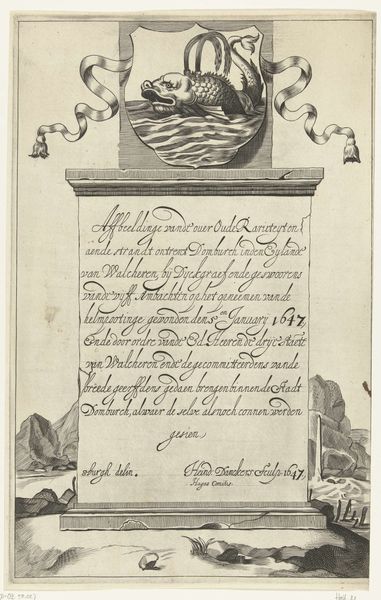 Affbeeldinge vande over Oude Rariteyten
aende strandt ontrent Domburch inden Eylande
van Walcheren, bij Dijckgraef ende gesworens
vande vijff Ambachten op het geneemen vande
helmpotinge, gevonden den 5en January 1647,
Ende door ordre vande Ed. Heeren de drye Staten
van Walcheren ende de gecommitteerdens vande
breede geerffdens gedaen brengen binnen de Stadt
Domburch, alwaer de selve alsnoch connen werden
gesien
burgh delin.
Hend Danckers Sculp. 1647
Hagae Comitis.